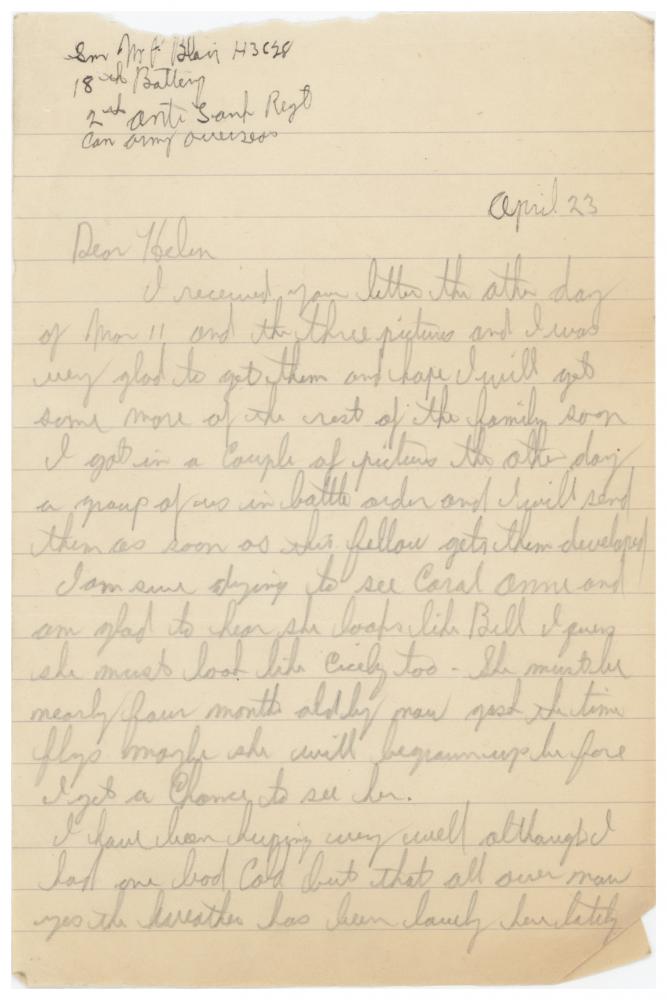 Gnr W F Blair H3628
18th Battery
2nd anti Tank Regt
Can army overseas
April 23
Dear Helen
I received your letter the other day
of Mar 11 and the three pictures and I was
very glad to get them and hope I will get
some more of the rest of the family soon
I got in a Couple of pictures the other day
a group of us in battle order and I will send
them as soon as this fellow gets them developed
I am sure dying to see Carol Anne and
am glad to hear she looks like Bill I guess
she must look like Cicely too - She must be
nearly four months old by now gosh the time
flys maybe she will be grown up before
I get a Chance to see her.
I have been keeping very well although I
had one bad Cold but thats all over now
yes the weather has been lovely here lately